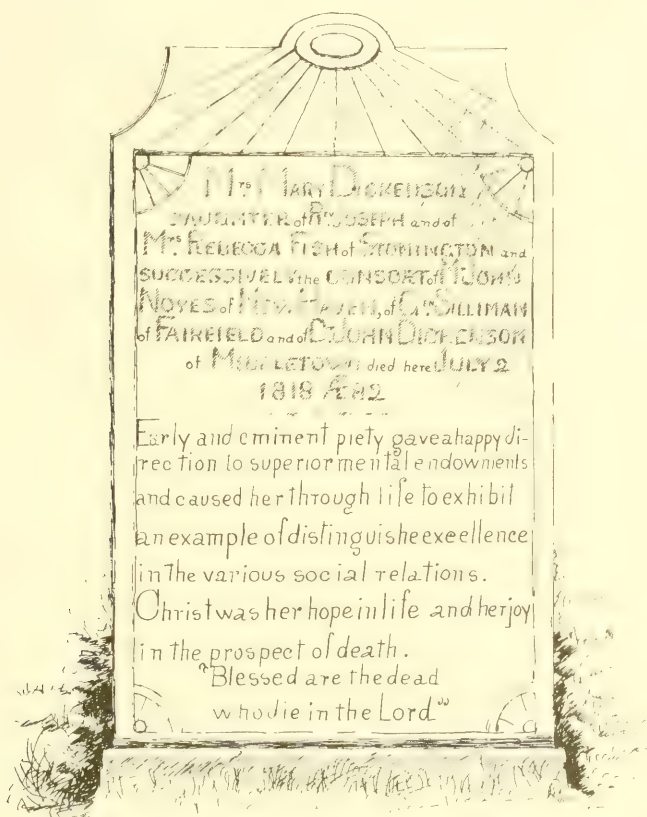 Mrs MARY DICKENSON
DAUGHTER of Rev JOSEPH and of
Mrs REBECCA FISH of STONINGTON and
SUCCESSIVELY the CONSORT of Mr JOHN
NOYES of NEW HAVEN, of Gen SILLIMAN
of FAIRFIELD and of Dr JOHN DICKENSON
of MIDDLETOWN died here JULY 2
1818 Æ 82
Early and eminent piety gave a happy di-
rection to superior mental endowments
and caused her through life to exhibit
an example of distinguishe exeellence
in the various social relations.
Christ was her hope in life and her joy
in the prospect of death.
"Blessed are the dead
who die in the Lord"